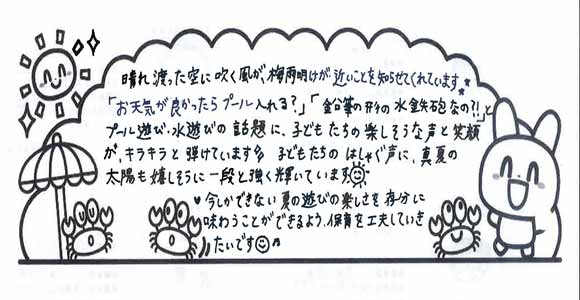 晴れ渡った空に吹く風が、梅雨明けが近いことを知らせてくれています。
「お天気が良かったらプール入れる？」「鉛筆の形の水鉄砲なの?!」と
プール遊び・水遊びの話題に、子どもたちの楽しそうな声と笑顔
が、キラキラと弾けています♪ 子どもたちのはしゃぐ声に、真夏の
太陽も嬉しそうに一段と強く輝いています
♥今しかできない夏の遊びの楽しさを存分に
味わうことができるよう、保育を工夫していき
たいです♬